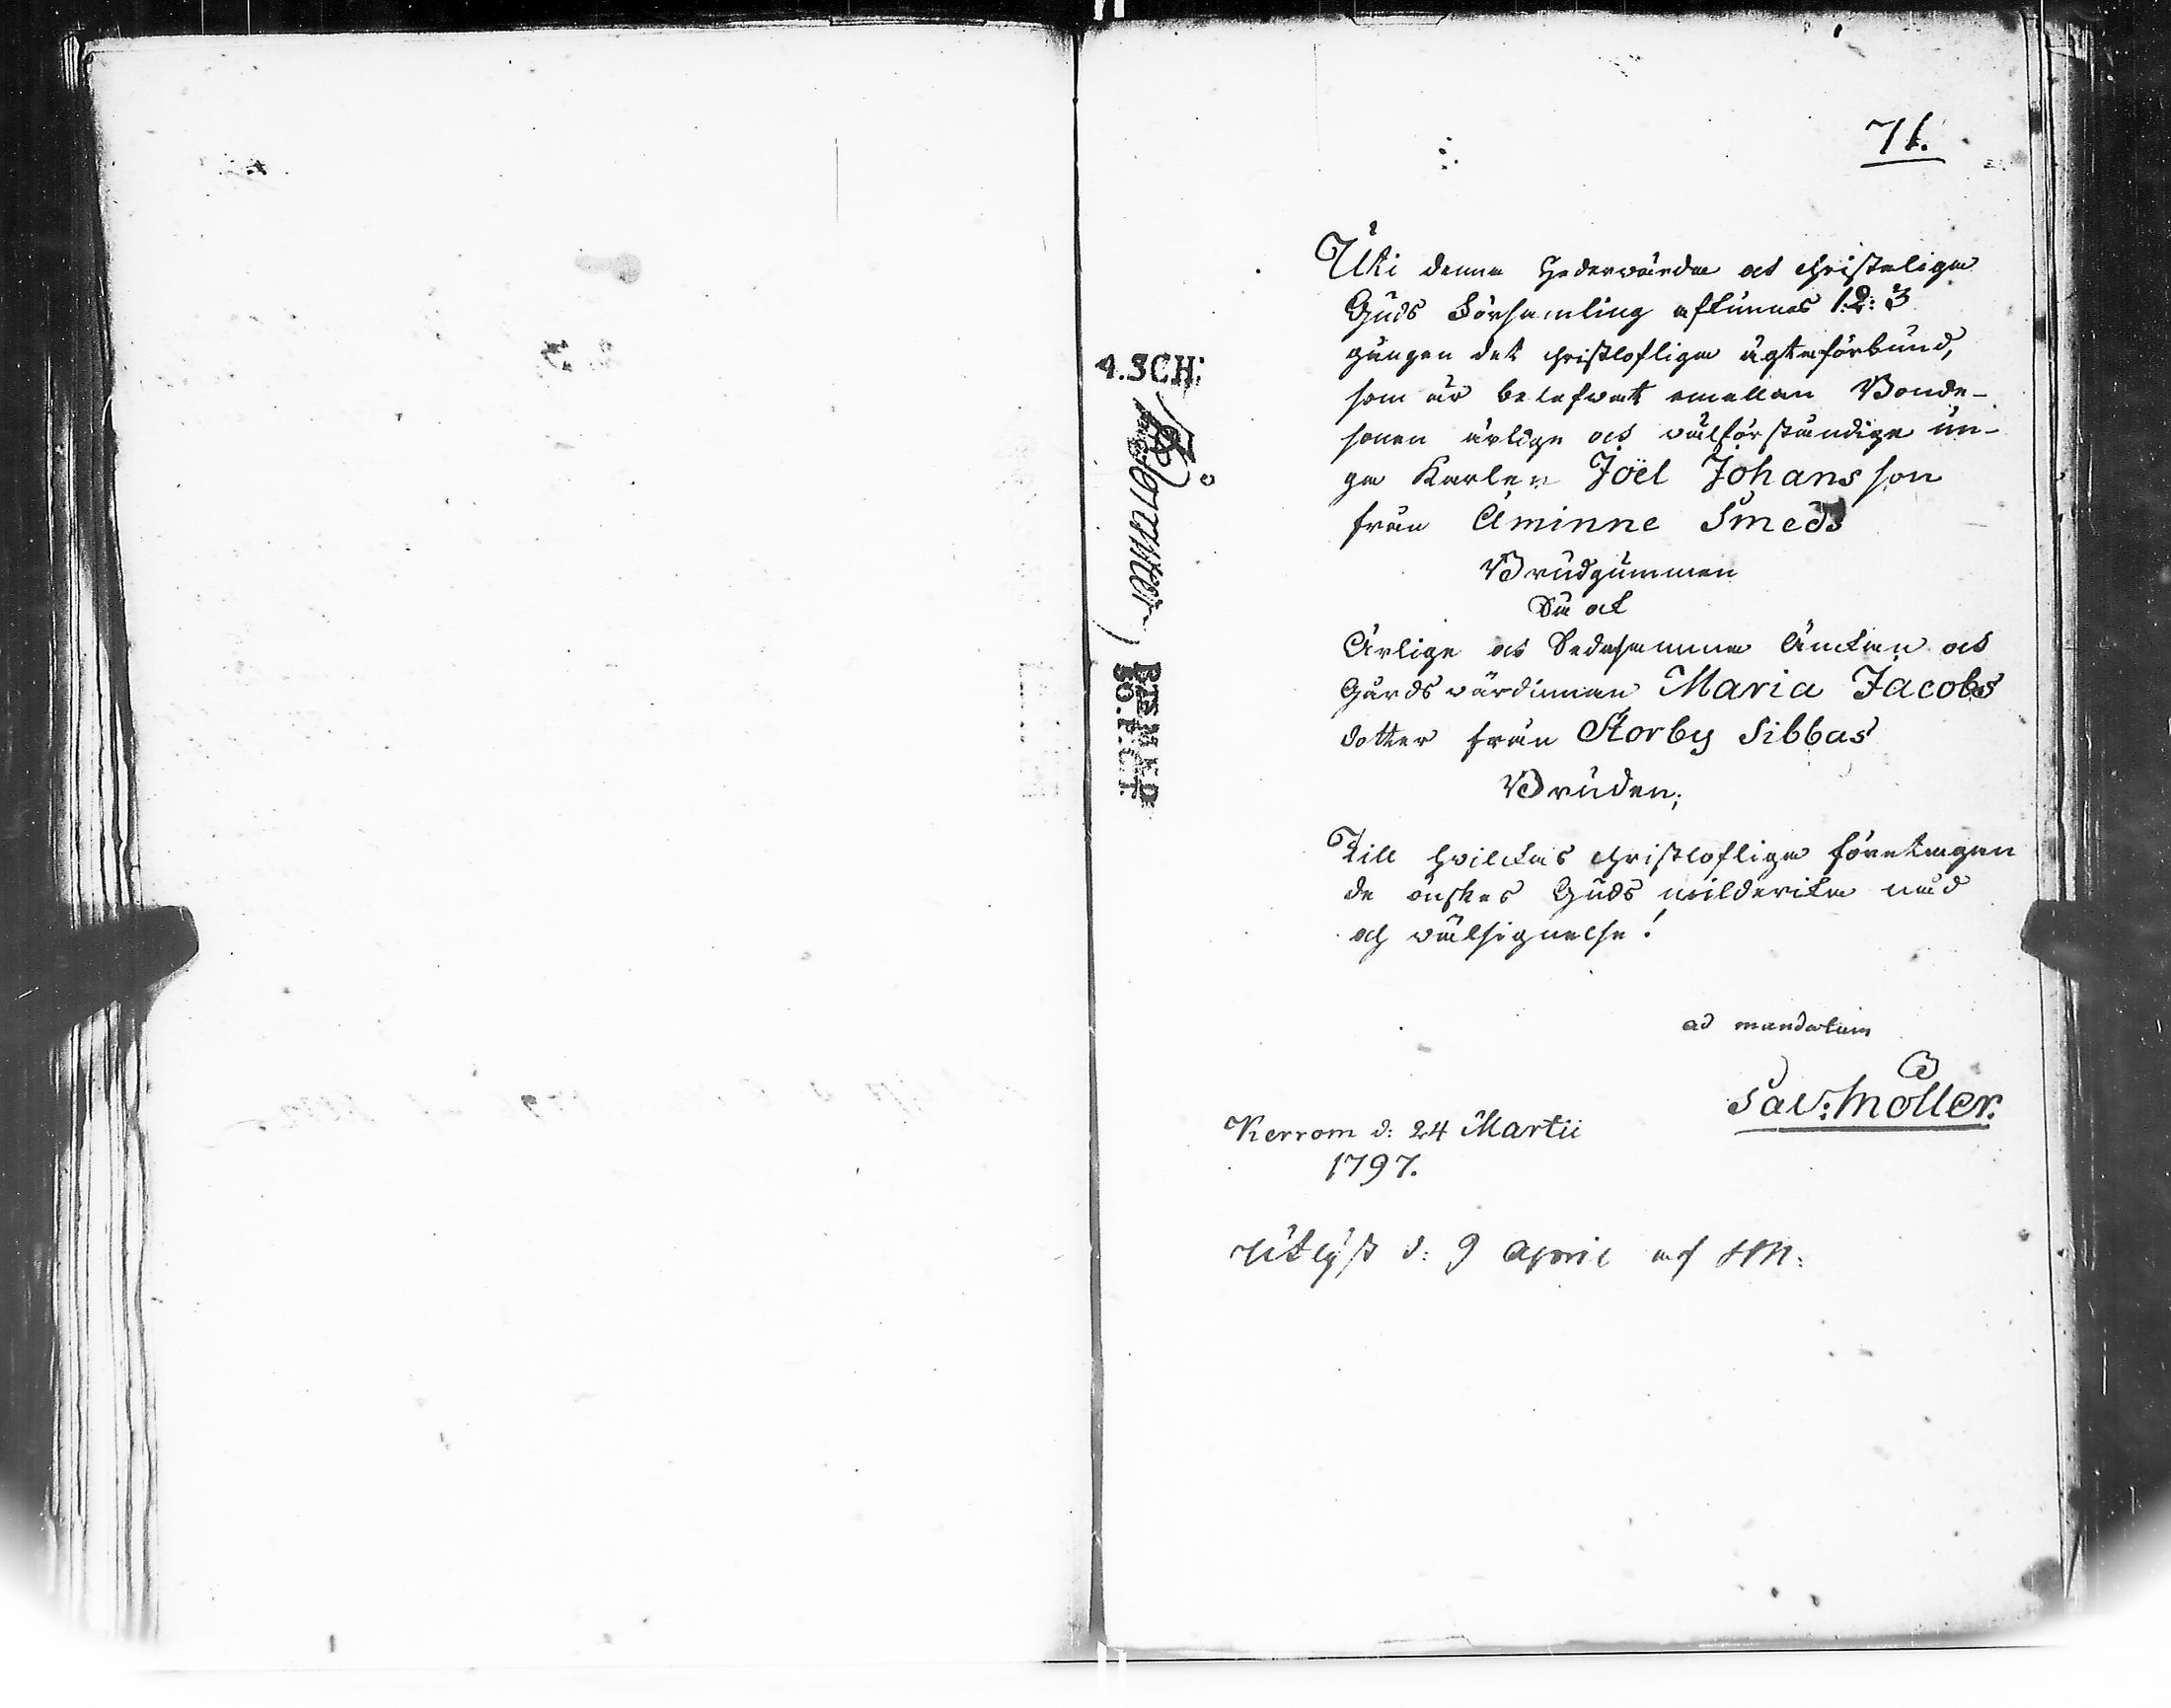 71.
Uti denna Hedervärda och christeliga
Guds Församling afkunnas 1. 2: 3
gången det christlofliga ägtaförbund,
som är belefwat emellan Bonde-
sonen ärlige och wälförståndige un-
ga Karlen Joël Johansson
från Åminne Smeds
Brudgummen
Så ock
Ärliga och Sedesamma Änckan och
Gårdswärdinnan Maria Jacobs
dotter från Storby Sibbas
Bruden;
Till hvilckas christlofliga företagan
de önskas Guds milderika nåd
och wälsignelse!
ad mandatum
Sav: Möller.
Kerrom d: 24 Martii
1797.
Utlyst d: 9 April af SM:
4. SCH: